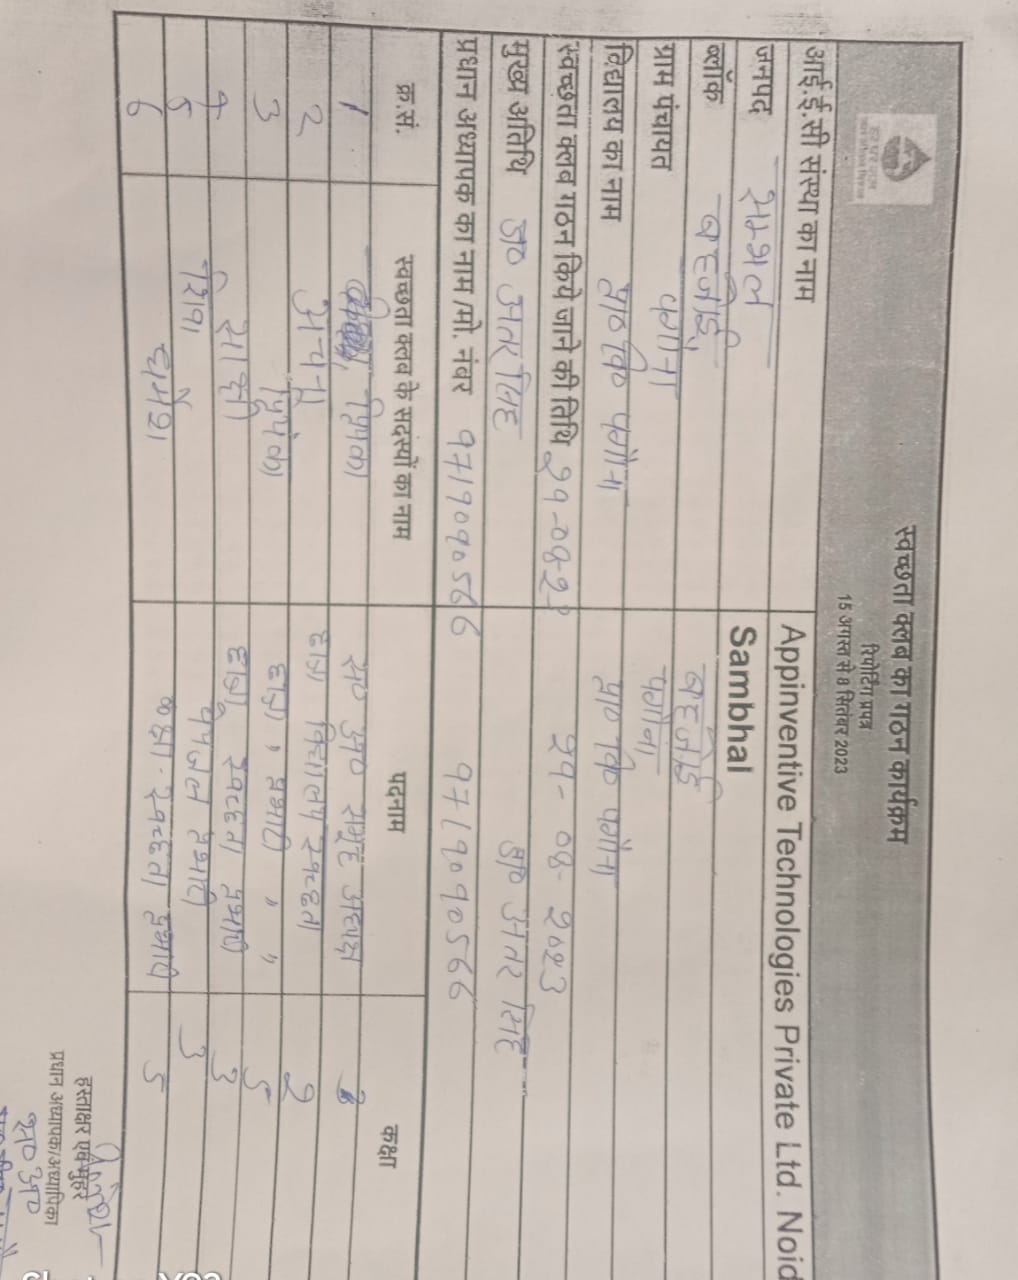 स्वच्छता क्लब का गठन कार्यक्रम
रिपोर्टिंग प्रपत्र
15 अगस्त से 8 सितंबर 2023
आई.ई.सी संस्था का नाम Appinventive Technologies Private Ltd. Noid
जनपद सम्भल Sambhal
ब्लॉक बहजोई बहजोई
ग्राम पंचायत पगौना पगौना
विद्यालय का नाम प्रा० वि० पगौना प्रा० वि० पगौना
स्वच्छता क्लब गठन किये जाने की तिथि 29-08-23 29-08-2023
मुख्य अतिथि अतर सिंह अतर सिंह
प्रधान अध्यापक का नाम/मो. नंबर 9719090566 9719090566
क्र.सं. स्वच्छता क्लब के सदस्यों का नाम पदनाम कक्षा
1 स० अ० समूह अध्यक्ष
2 छात्रा विद्यालय स्वच्छता 2
3 छात्रा " प्रभारी " " 5
4 साक्षी छात्रा स्वच्छता प्रभारी 3
5 पेयजल प्रभारी 3
6 धर्मेश कक्षा-स्वच्छता प्रभारी 5
हस्ताक्षर एवं मुहर
प्रधान अध्यापक/अध्यापिका
स० अ०